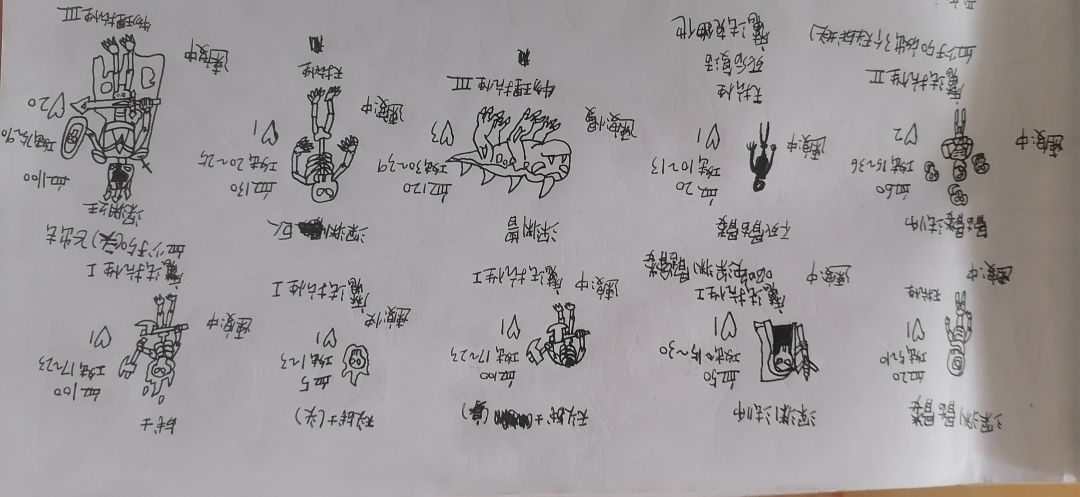 深渊骷髅
血20
攻击5~10
1
无抗性
速度:中
深渊法师
血50
攻击15~30
1
魔法抗性I
深渊骷髅
速度:中
无头骑士(身)
血100
攻击17~23
1
魔法抗性I
速度:中
无头骑士(头)
血5
攻击1~3
1
魔法抗性I
速度:快
骑士
血100
攻击17~23
1
魔法抗性I
速度:中
血少于50(头)飞出去
骷髅法师
血60
攻击15~36
2
魔法抗性II
血少于50
速度:中
不死骷髅
血20
攻击10~13
1
无抗性
死后复活
魔法克制他
速度:中
深渊兽
血120
攻击30~39
3
物理抗性III
速度:慢
深渊巨人
血130
攻击20~25
1
无抗性
速度:中
深渊之王
血1100
攻击75~90
20
物理抗性III
速度:中